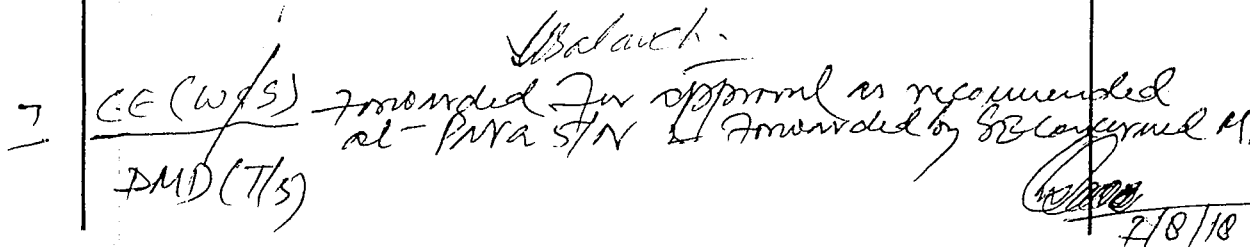 Balauch.
7 CE (W/S) Forwarded For approval as recommended
at Para 5/N & Forwarded by SE concerned M.
DMD (T/S)
7/8/18